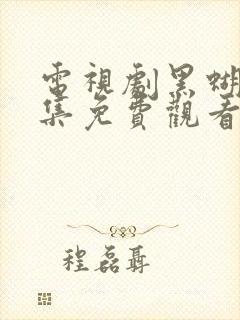 電視劇黑蝴
集免費觀看
程磊聶